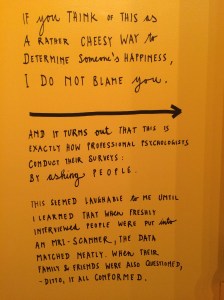 IF you THINK OF THIS AS
A RATHER CHEESY WAY to
DETERMINE SOMEONE'S HAPPINESS,
I DO NOT BLAME you.
AND IT TURNS out THAT THIS IS
EXACTLY HOW PROFESSIONAL PSYCHOLOGISTS
CONDUCT THEIR SURVEYS:
BY asking PEOPLE.
THIS SEEMED LAUGHABLE to ME UNTIL
I LEARNED THAT WHEN FRESHLY
INTERVIEWED PEOPLE WERE PUT into
AN MRI-SCANNER, THE DATA
MATCHED NEATLY. WHEN THEIR
FAMILY & FRIENDS WERE ALSO QUESTIONED,
-DITTO, IT ALL CONFORMED.